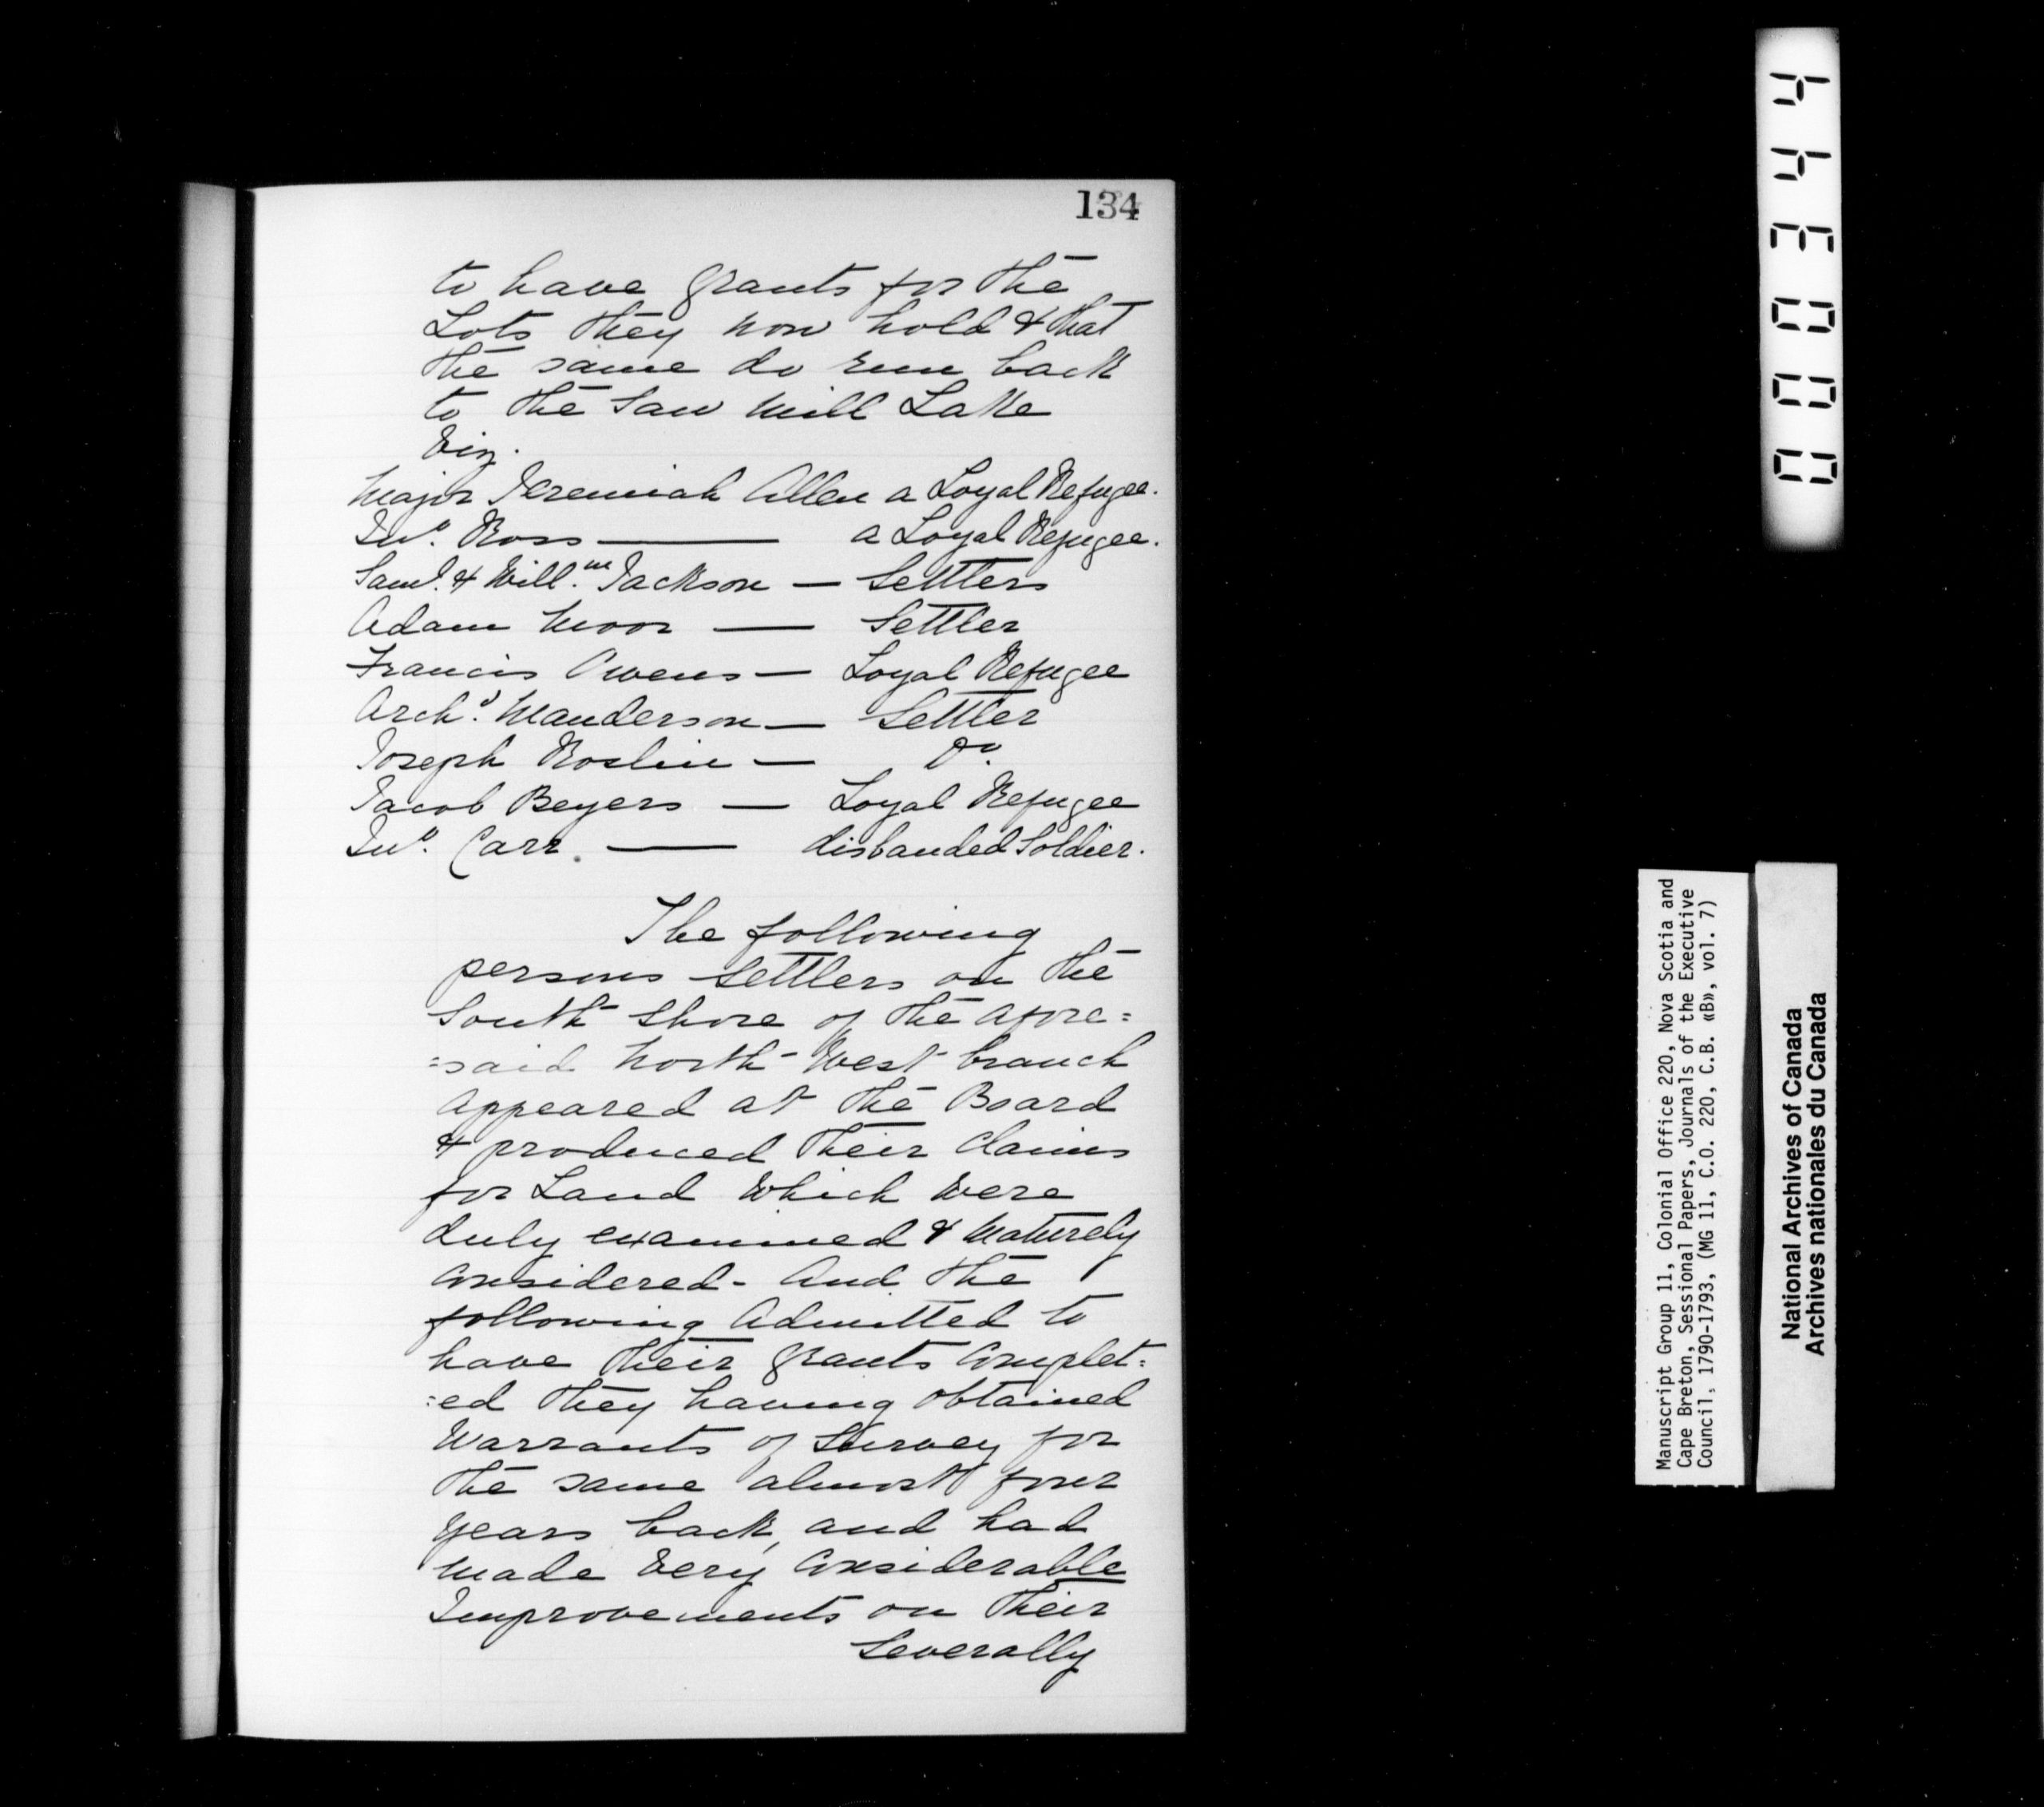 134
to have grants for the
Lots they now hold & that
the same do run back
to the Saw Mill Lake
Viz.
Major Jeremiah Allen a Loyal Refugee.
Jno. Ross — a Loyal Refugee.
Saml. & Willm. Jackson — Settlers
Adam Moor — Settler
Francis Owens — Loyal Refugee
Archd. Manderson — Settler
Joseph Roslin — Do.
Jacob Beyers — Loyal Refugee
Jno. Carr. — disbanded Soldier.
The following
persons Settlers on the
South Shore of the afore=
=said North West branch
appeared at the Board
& produced their claims
for Land which were
duly examined & Maturely
Considered - And the
following Admitted to
have their grants Complet=
=ed they having obtained
Warrants of Survey for
the same almost four
years back, and had
Made Very Considerable
Improvements on their
Severally
443000
Manuscript Group 11, Colonial Office 220, Nova Scotia and
Cape Breton, Sessional Papers, Journals of the Executive
Council, 1790-1793, (MG 11, C.O. 220, C.B. «B», vol. 7)
National Archives of Canada
Archives nationales du Canada